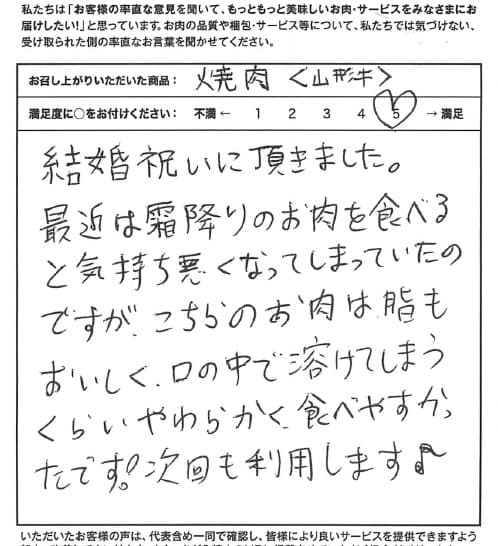 私たちは「お客様の率直な意見を聞いて、もっともっと美味しいお肉・サービスをみなさまにお
届けしたい!」と思っています。お肉の品質や梱包・サービス等について、私たちでは気づけない、
受け取られた側の率直なお言葉を聞かせてください。
お召し上がりいただいた商品： 焼肉〈山形牛〉
満足度に○をお付けください： 不満 ← 1 2 3 4 5 → 満足
結婚祝いに頂きました。
最近は霜降りのお肉を食べる
と気持ち悪くなってしまっていたの
ですが、こちらのお肉は脂も
おいしく、口の中で溶けてしまう
くらいやわらかく、食べやすかっ
たです!次回も利用します♪
いただいたお客様の声は、代表含め一同で確認し、皆様により良いサービスを提供できますよう